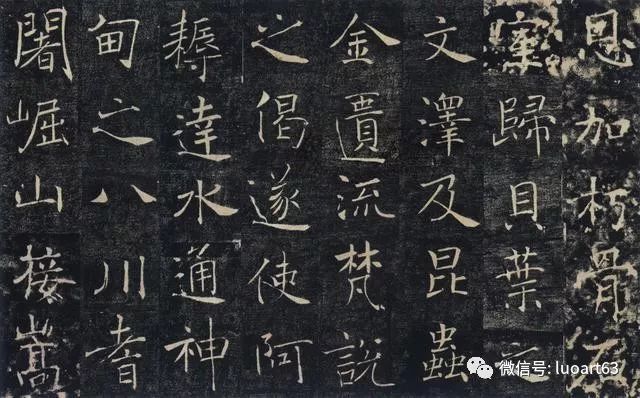 恩加朽骨石
室歸貝葉之
文澤及昆蟲
金匱流梵說
之偈遂使阿
耨達水通神
甸之八川耆
闍崛山接嵩
微信号: luoart63